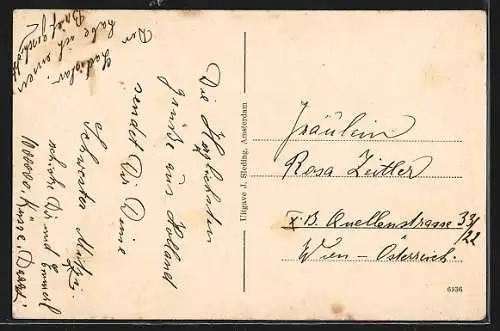 Die Herzlichsten
Grüße aus Holland
sendet Dir Deine
Schwester Mitzi.
schicke Dir und Emmerl
1000000, Küsse, Derst.
Der
Ladislar.
habe ich einen
Brief geschickt
Uitgave J. Sleding, Amsterdam
Fräulein
Rosa Zeitler
X. B. Quellenstrasse 33/22
Wien – Österreich.
6936